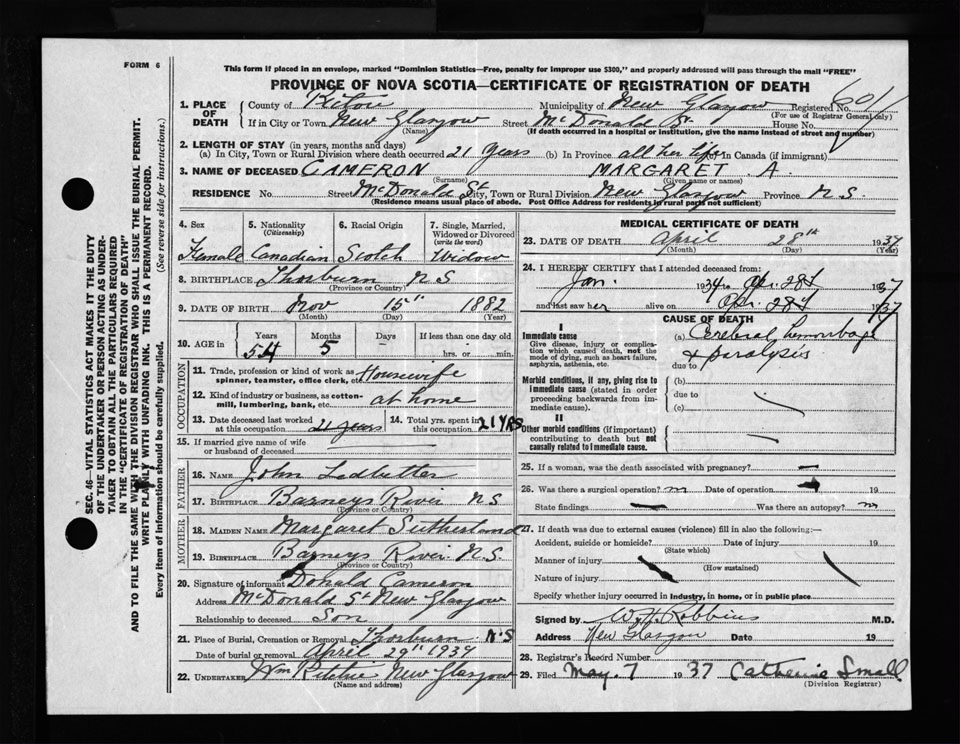 FORM 6
This form if placed in an envelope, marked "Dominion Statistics—Free, penalty for improper use $300," and properly addressed will pass through the mail "FREE"
PROVINCE OF NOVA SCOTIA—CERTIFICATE OF REGISTRATION OF DEATH
1. PLACE OF DEATH County of Pictou Municipality of New Glasgow Registered No. 601
(For use of Registrar General only)
If in City or Town New Glasgow Street McDonald St. House No.
(Name) (If death occurred in a hospital or institution, give the name instead of street and number)
2. LENGTH OF STAY (in years, months and days)
(a) In City, Town or Rural Division where death occurred 21 Years (b) In Province all her life (c) In Canada (if immigrant)
3. NAME OF DECEASED CAMERON MARGARET A.
(Surname) (Given name or names)
RESIDENCE No. Street McDonald St City, Town or Rural Division New Glasgow Province N.S.
(Residence means usual place of abode. Post Office Address for residents in rural parts not sufficient)
SEC. 46—VITAL STATISTICS ACT MAKES IT THE DUTY
OF THE UNDERTAKER OR PERSON ACTING AS UNDER-
TAKER TO OBTAIN ALL THE PARTICULARS REQUIRED
IN THE "CERTIFICATE OF REGISTRATION OF DEATH"
AND TO FILE THE SAME WITH THE DIVISION REGISTRAR WHO SHALL ISSUE THE BURIAL PERMIT.
WRITE PLAINLY WITH UNFADING INK. THIS IS A PERMANENT RECORD.
Every item of information should be carefully supplied. (See reverse side for instructions.)
4. Sex 5. Nationality (Citizenship) 6. Racial Origin 7. Single, Married, Widowed or Divorced (write the word)
Female Canadian Scotch Widow
8. BIRTHPLACE Thorburn N S
(Province or Country)
9. DATE OF BIRTH Nov 15" 1882
(Month) (Day) (Year)
10. AGE in Years Months Days If less than one day old
54 5 – hrs. or min.
OCCUPATION
11. Trade, profession or kind of work as spinner, teamster, office clerk, etc. Housewife
12. Kind of industry or business, as cotton-mill, lumbering, bank, etc. at home
13. Date deceased last worked at this occupation 21 years 14. Total yrs. spent in this occupation 21 YRS
15. If married give name of wife or husband of deceased
FATHER
16. NAME John Ledbetter
17. BIRTHPLACE Barneys River N S
(Province or Country)
MOTHER
18. MAIDEN NAME Margaret Sutherland
19. BIRTHPLACE Barneys River. N.S.
(Province or Country)
20. Signature of informant Donald Cameron
Address McDonald St New Glasgow
Relationship to deceased Son
21. Place of Burial, Cremation or Removal Thorburn N.S
Date of burial or removal April 29" 1937
22. UNDERTAKER Wm Ritchie New Glasgow
(Name and address)
MEDICAL CERTIFICATE OF DEATH
23. DATE OF DEATH April 28th 1937
(Month) (Day) (Year)
24. I HEREBY CERTIFY that I attended deceased from:
Jan. 1934 to Apr. 28th 1937
and last saw her alive on Apr. 28th 1937
CAUSE OF DEATH
I
Immediate cause (a) Cerebral hemorrhage
Give disease, injury or complication which caused death, not the mode of dying, such as heart failure, asphyxia, asthenia, etc.
& paralysis
due to
Morbid conditions, if any, giving rise to immediate cause (stated in order proceeding backwards from immediate cause).
(b)
due to
(c)
II
Other morbid conditions (if important) contributing to death but not causally related to immediate cause.
25. If a woman, was the death associated with pregnancy? –
26. Was there a surgical operation? no Date of operation 19
State findings Was there an autopsy? no
27. If death was due to external causes (violence) fill in also the following:—
Accident, suicide or homicide? Date of injury 19
(State which)
Manner of injury
(How sustained)
Nature of injury
Specify whether injury occurred in industry, in home, or in public place
Signed by W. H. Robbins M.D.
Address New Glasgow Date 19
28. Registrar's Record Number
29. Filed May. 7 1937 Catherine Small
(Division Registrar)